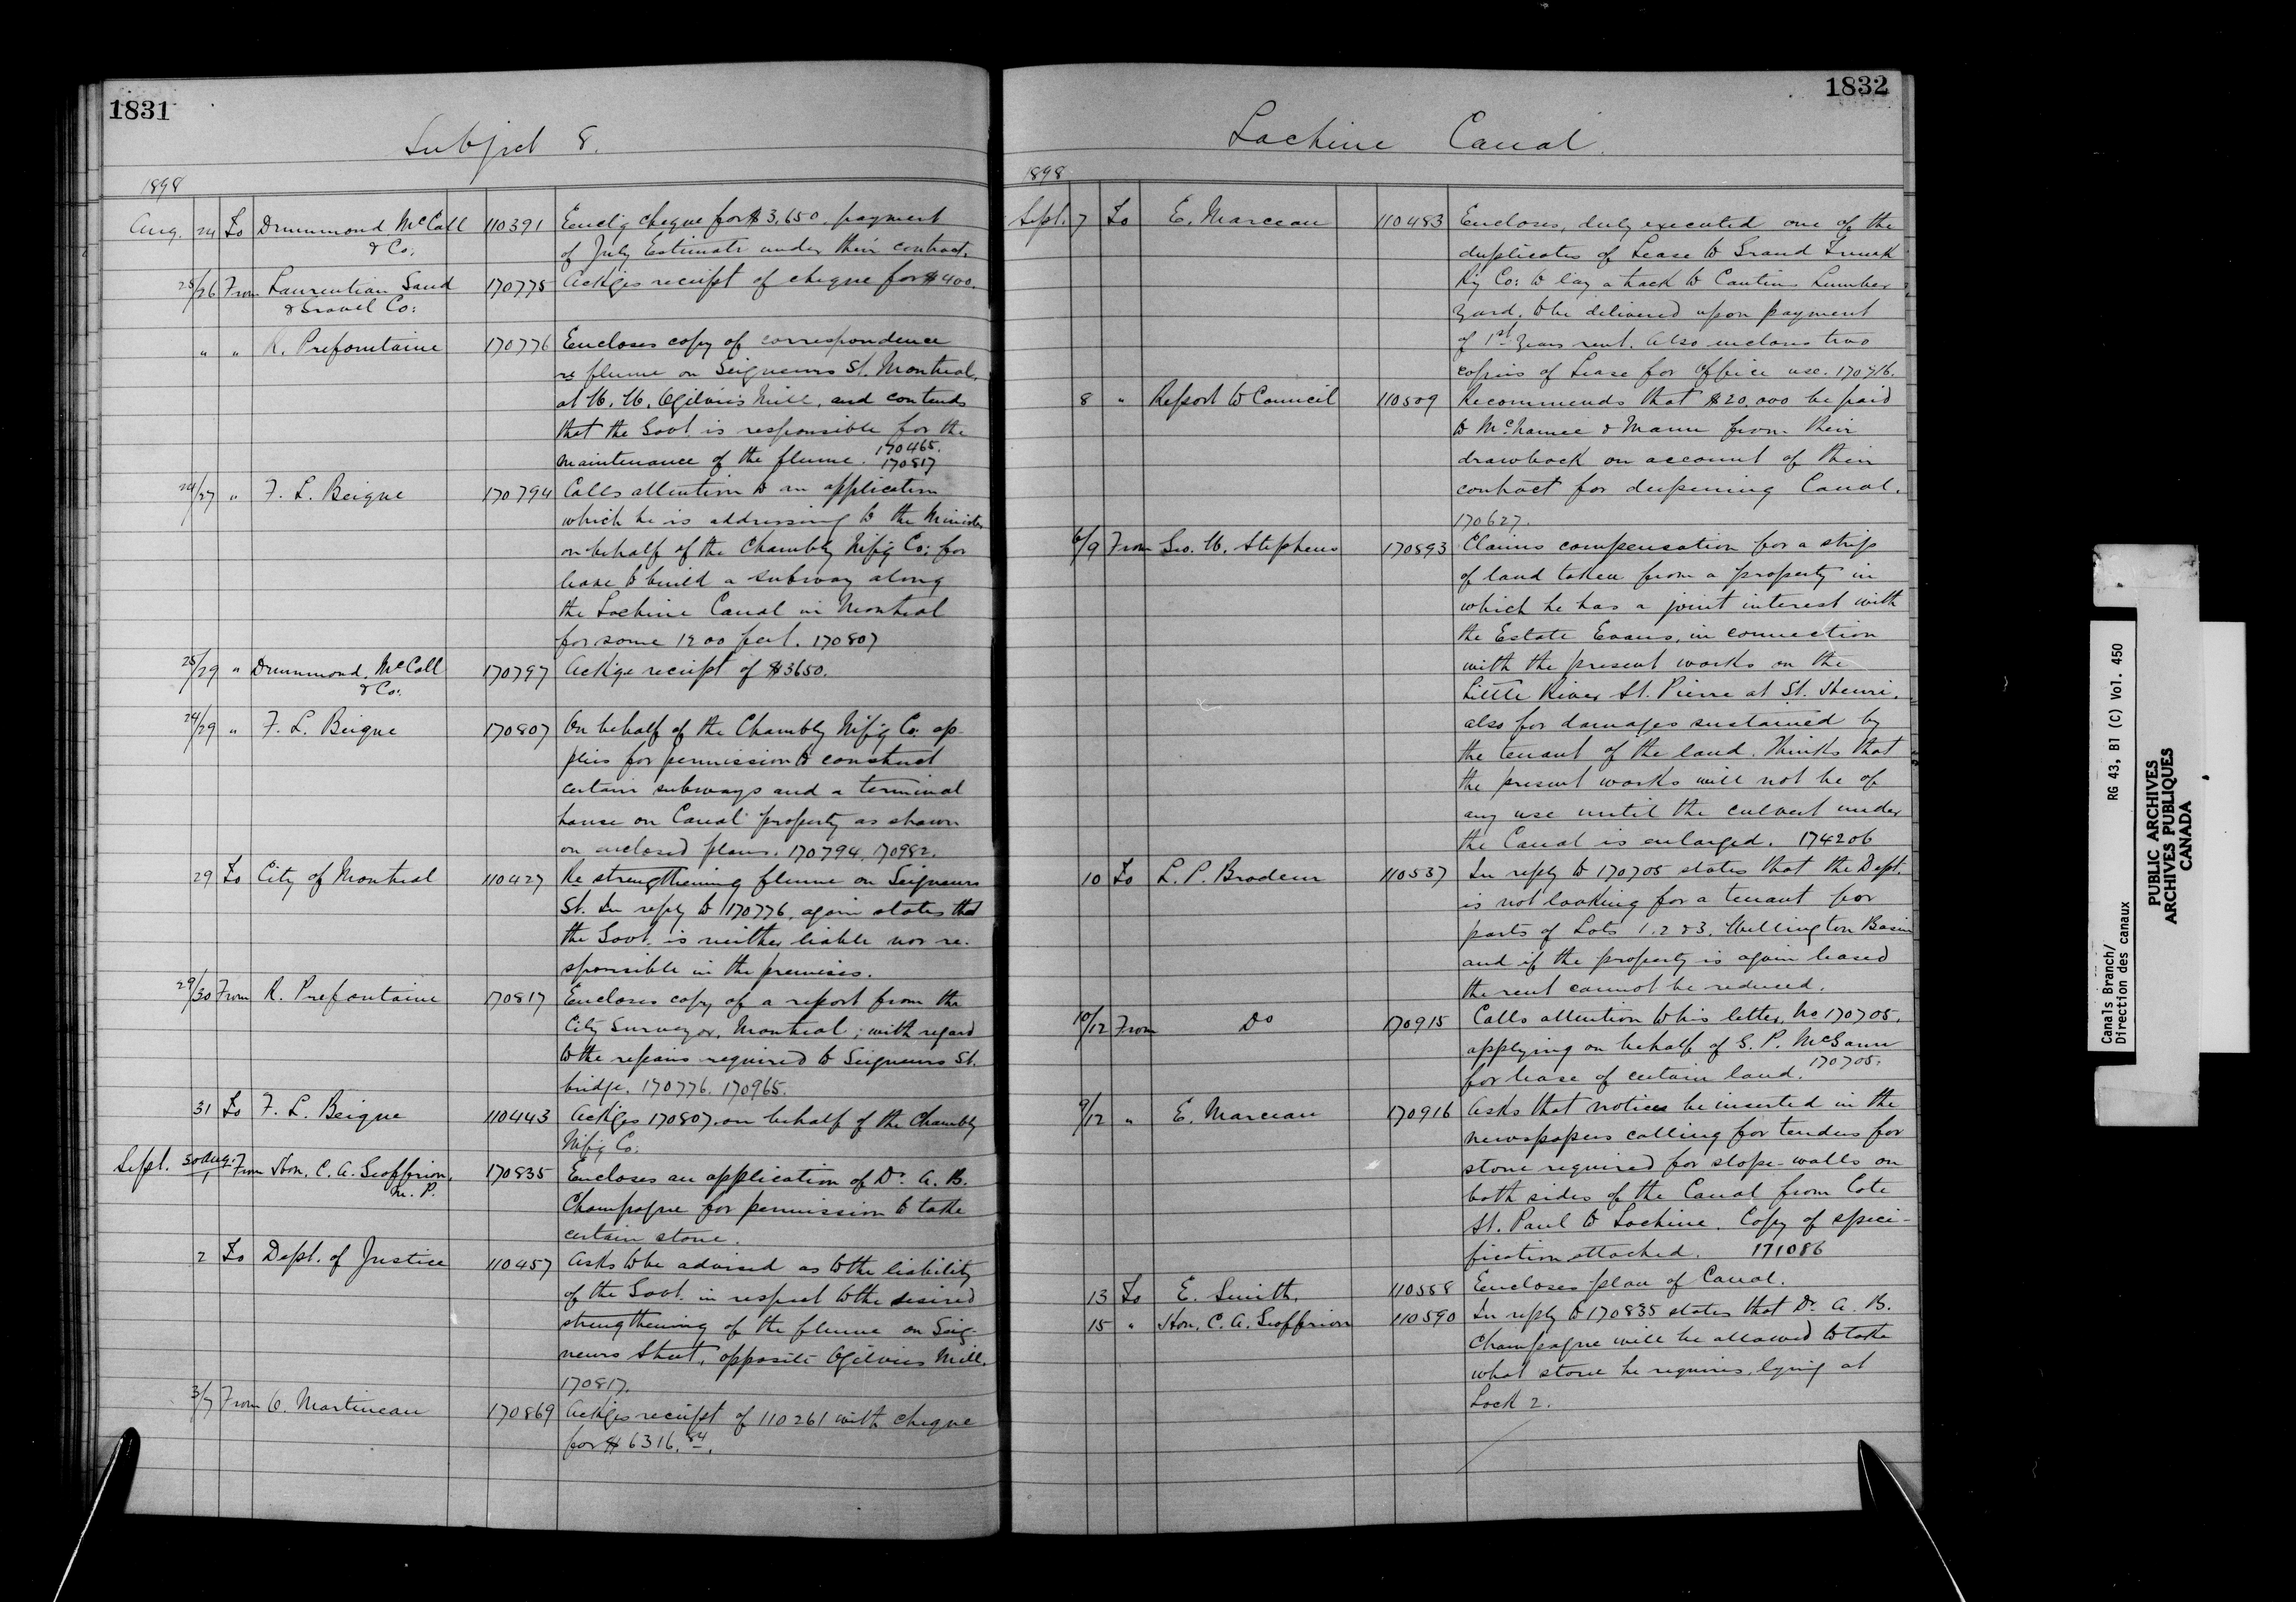 1831
Subject 8.
1898
Aug. 24 To Drummond, McCall 110391 Enclg cheque for $3,650. payment
& Co: of July Estimate under their contract.
25/26 From Laurentian Sand 170775 Ackges receipt of cheque for $400.
& Gravel Co:
" " R. Prefontaine 170776 Encloses copy of correspondence
re flume on Seigneurs St. Montreal,
at W. W. Ogilvie's Mill, and contends
that the Govt. is responsible for the
maintenance of the flume. 170465.
170817
24/27 " F. L. Beique 170794 Calls attention to an application
which he is addressing to the Minister
on behalf of the Chambly Mfg Co: for
lease to build a subway along
the Lachine Canal in Montreal
for some 1200 feet. 170807
25/29 " Drummond, McCall 170797 Ackge receipt of $3650.
& Co:
24/29 " F. L. Beique 170807 On behalf of the Chambly Mfg Co: ap-
plies for permission to construct
certain subways and a terminal
house on Canal property as shown
on enclosed plans. 170794. 170982.
29 To City of Montreal 110427 Re strengthening flume on Seigneurs
St. In reply to 170776, again states that
the Govt. is neither liable nor re-
sponsible in the premises.
29/30 From R. Prefontaine 170817 Encloses copy of a report from the
City Surveyor, Montreal; with regard
to the repairs required to Seigneurs St.
bridge. 170776. 170965.
31 To F. L. Beique 110443 Ackges 170807, on behalf of the Chambly
Mfg Co:
Sept. 30 Aug./1 From Hon. C. A. Geoffrion, 170835 Encloses an application of Dr. A. B.
M. P. Champagne for permission to take
certain stone.
2 To Dept. of Justice 110457 Asks to be advised as to the liability
of the Govt. in respect to the desired
strengthening of the flume on Seig-
neurs Street, opposite Ogilvies Mill.
170817.
3/7 From O. Martineau 170869 Ackges receipt of 110261 with cheque
for $6316.84.
1832
Lachine Canal.
1898
Sept. 7 To E. Marceau 110483 Encloses, duly executed one of the
duplicates of Lease to Grand Trunk
Ry Co: to lay a track to Cantins Lumber
Yard, to be delivered upon payment
of 1st Years rent. Also encloses two
copies of Lease for Office use. 170716.
8 " Report to Council 110509 Recommends that $20,000 be paid
to McNamee & Mann from their
drawback on account of their
contract for deepening Canal.
170627.
6/9 From Geo. W. Stephens 170893 Claims compensation for a strip
of land taken from a property in
which he has a joint interest with
the Estate Evans, in connection
with the present works on the
Little River St. Pierre at St. Henri,
also for damages sustained by
the tenant of the land. Thinks that
the present works will not be of
any use until the culvert under
the Canal is enlarged. 174206
10 To L. P. Brodeur 110537 In reply to 170705 states that the Dept.
is not looking for a tenant for
parts of Lots 1. 2 & 3. Wellington Basin
and if the property is again leased
the rent cannot be reduced.
10/12 From Do 170915 Calls attention to his letter, No 170705,
applying on behalf of S. P. McGann
for lease of certain land. 170705.
9/12 " E. Marceau 170916 Asks that notices be inserted in the
newspapers calling for tenders for
stone required for slope-walls on
both sides of the Canal from Cote
St. Paul to Lachine. Copy of speci-
fication attached. 171086
13 To E. Smith, 110558 Encloses plan of Canal.
15 " Hon. C. A. Geoffrion 110590 In reply to 170835 states that Dr. A. B.
Champagne will be allowed to take
what stone he requires, lying at
Lock 2.
Canals Branch/ RG 43, B1 (C) Vol. 450
Direction des canaux
PUBLIC ARCHIVES
ARCHIVES PUBLIQUES
CANADA